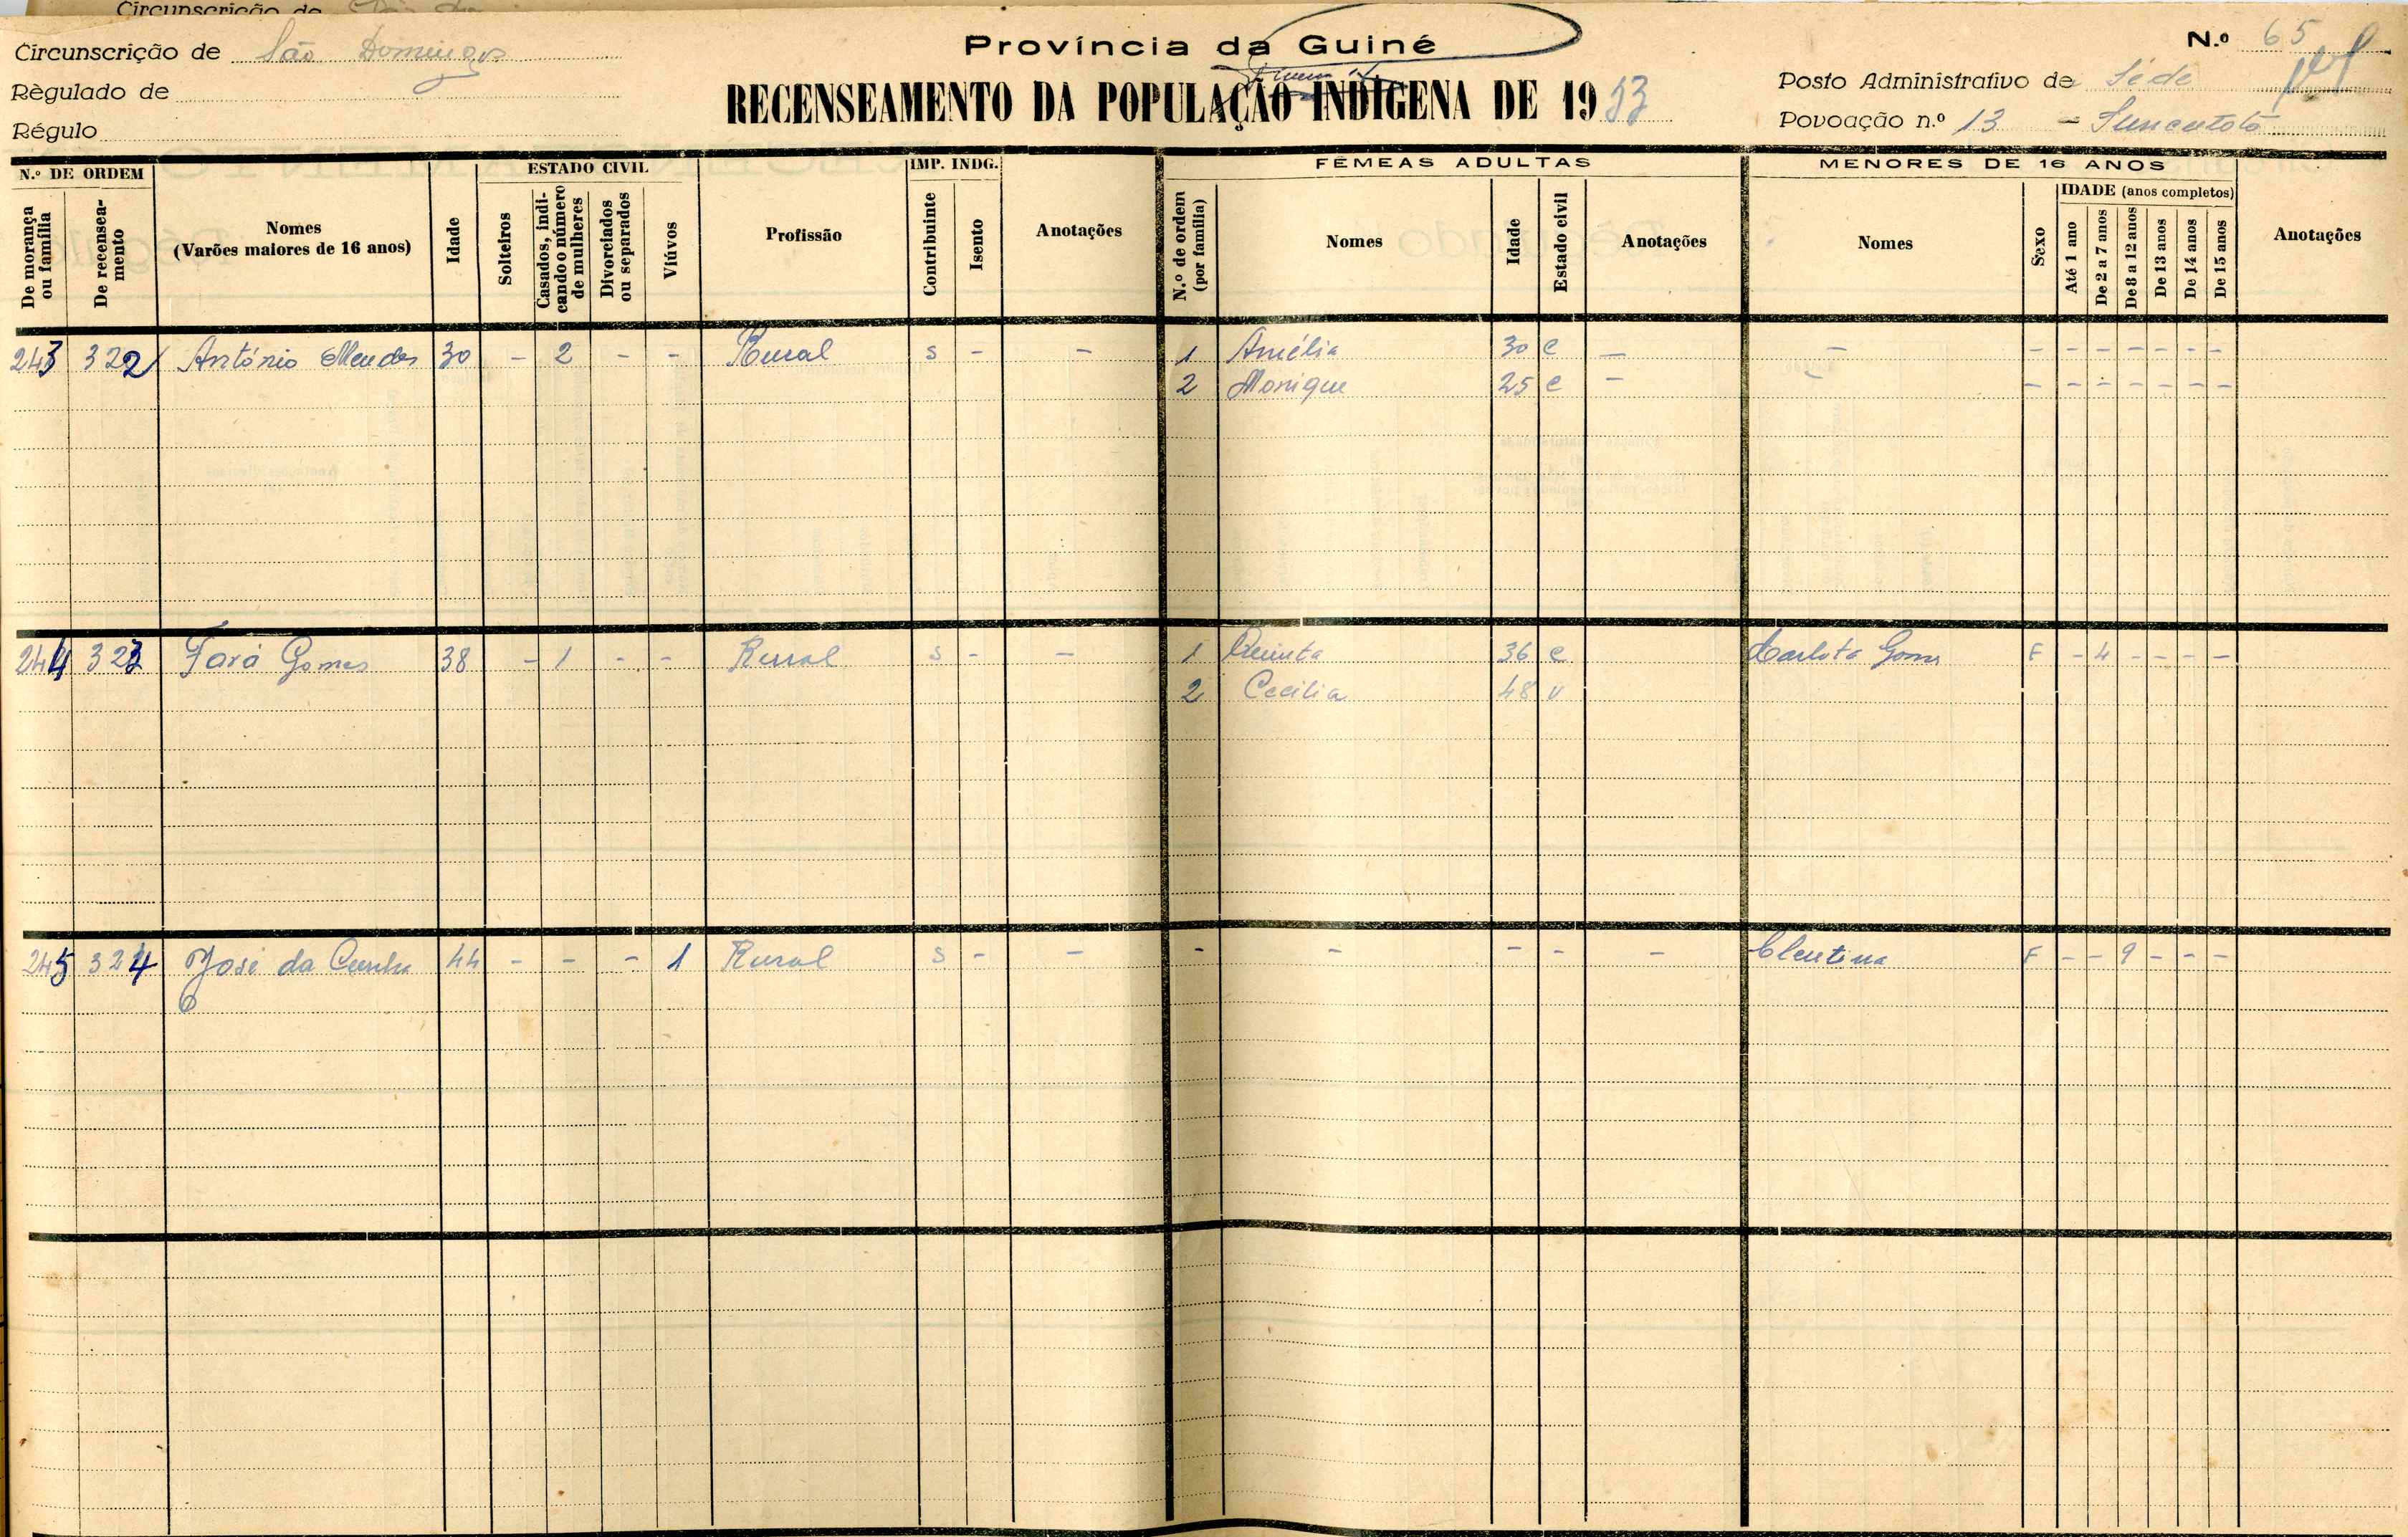 Circunscrição de
Circunscrição de São Domingos
Règulado de
Régulo
Província da Guiné
RECENSEAMENTO DA POPULAÇÃO INDÍGENA DE 1953
N.º 65
Posto Administrativo de Séde
Povoação n.º 13 -
N.º DE ORDEM
De morança ou família
De recenseamento
Nomes
(Varões maiores de 16 anos)
Idade
ESTADO CIVIL
Solteiros
Casados, indicando o número de mulheres
Divorciados ou separados
Viúvos
Profissão
IMP. INDG.
Contribuinte
Isento
Anotações
FEMEAS ADULTAS
N.º de ordem (por família)
Nomes
Idade
Estado civil
Anotações
MENORES DE 16 ANOS
Nomes
Sexo
IDADE (anos completos)
Até 1 ano
De 2 a 7 anos
De 8 a 12 anos
De 13 anos
De 14 anos
De 15 anos
Anotações
243 322 António Mendes 30 - 2 - - Rural s - - 1 Amélia 30 c - - - - - - - - -
2 Monique 25 c - - - - - - - - -
244 323 Gomes 38 - 1 - - Rural s - - 1 Quinta 36 c Carlota Gomes F - 4 - - - -
2 Cecilia 48 v
245 324 José da Cunha 44 - - - 1 Rural s - - - - - - - Clentina F - - 9 - - -